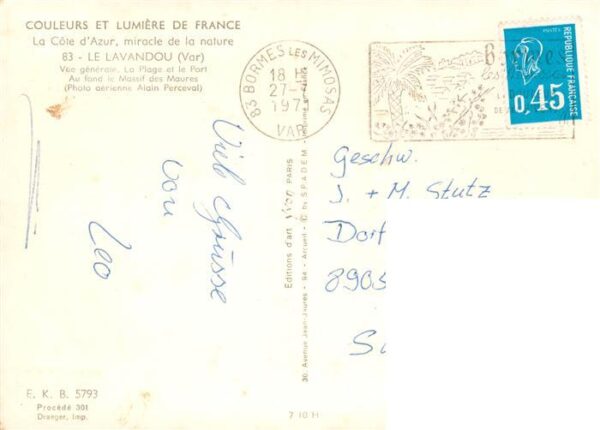 COULEURS ET LUMIÈRE DE FRANCE
La Côte d'Azur, miracle de la nature
83 - LE LAVANDOU (Var)
Vue générale. La Plage et le Port
Au fond le Massif des Maures
(Photo aérienne Alain Perceval)
83 BORMES LES MIMOSAS
18 H
27-
VAR
REPUBLIQUE FRANÇAISE
0,45
Viele Grüsse
von
Leo
Geschw.
J. + M. Stutz
Dorf
8905
Editions d'art Yvon PARIS
30, Avenue Jean-Jaurès - Arcueil - © by SPADEM
E. K. B. 5793
Procédé 301
Draeger, Imp.
7 10 H